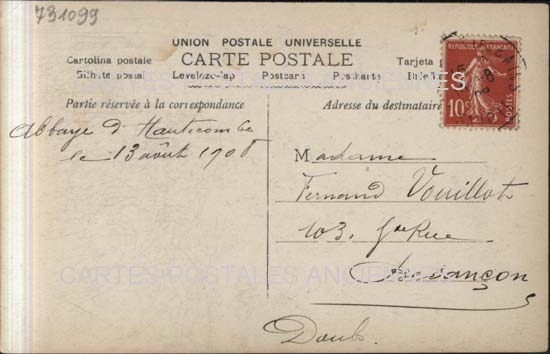 731099
UNION POSTALE UNIVERSELLE
CARTE POSTALE
Cartolina postale
Tarjeta
Postcard
Postkarte
Partie réservée à la correspondance
Adresse du destinataire
REPUBLIQUE FRANÇAISE
10c
POSTES
Abbaye d'Hautecombe
le 13 août 1908
Madame
Fernand Vouillot
103, Gde Rue
Besançon
Doubs.
CARTES POSTALES ANCIENNES